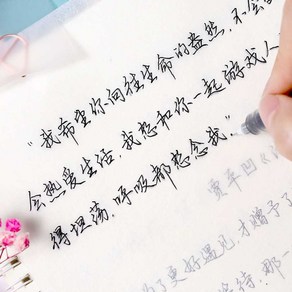 “我希望你向往生命的盎然，不会
会热爱生活，我想和你一起游戏人
得坦荡，呼吸都想念我。”
贾平凹《
为了更好遇见，才赠予了
等待，那一